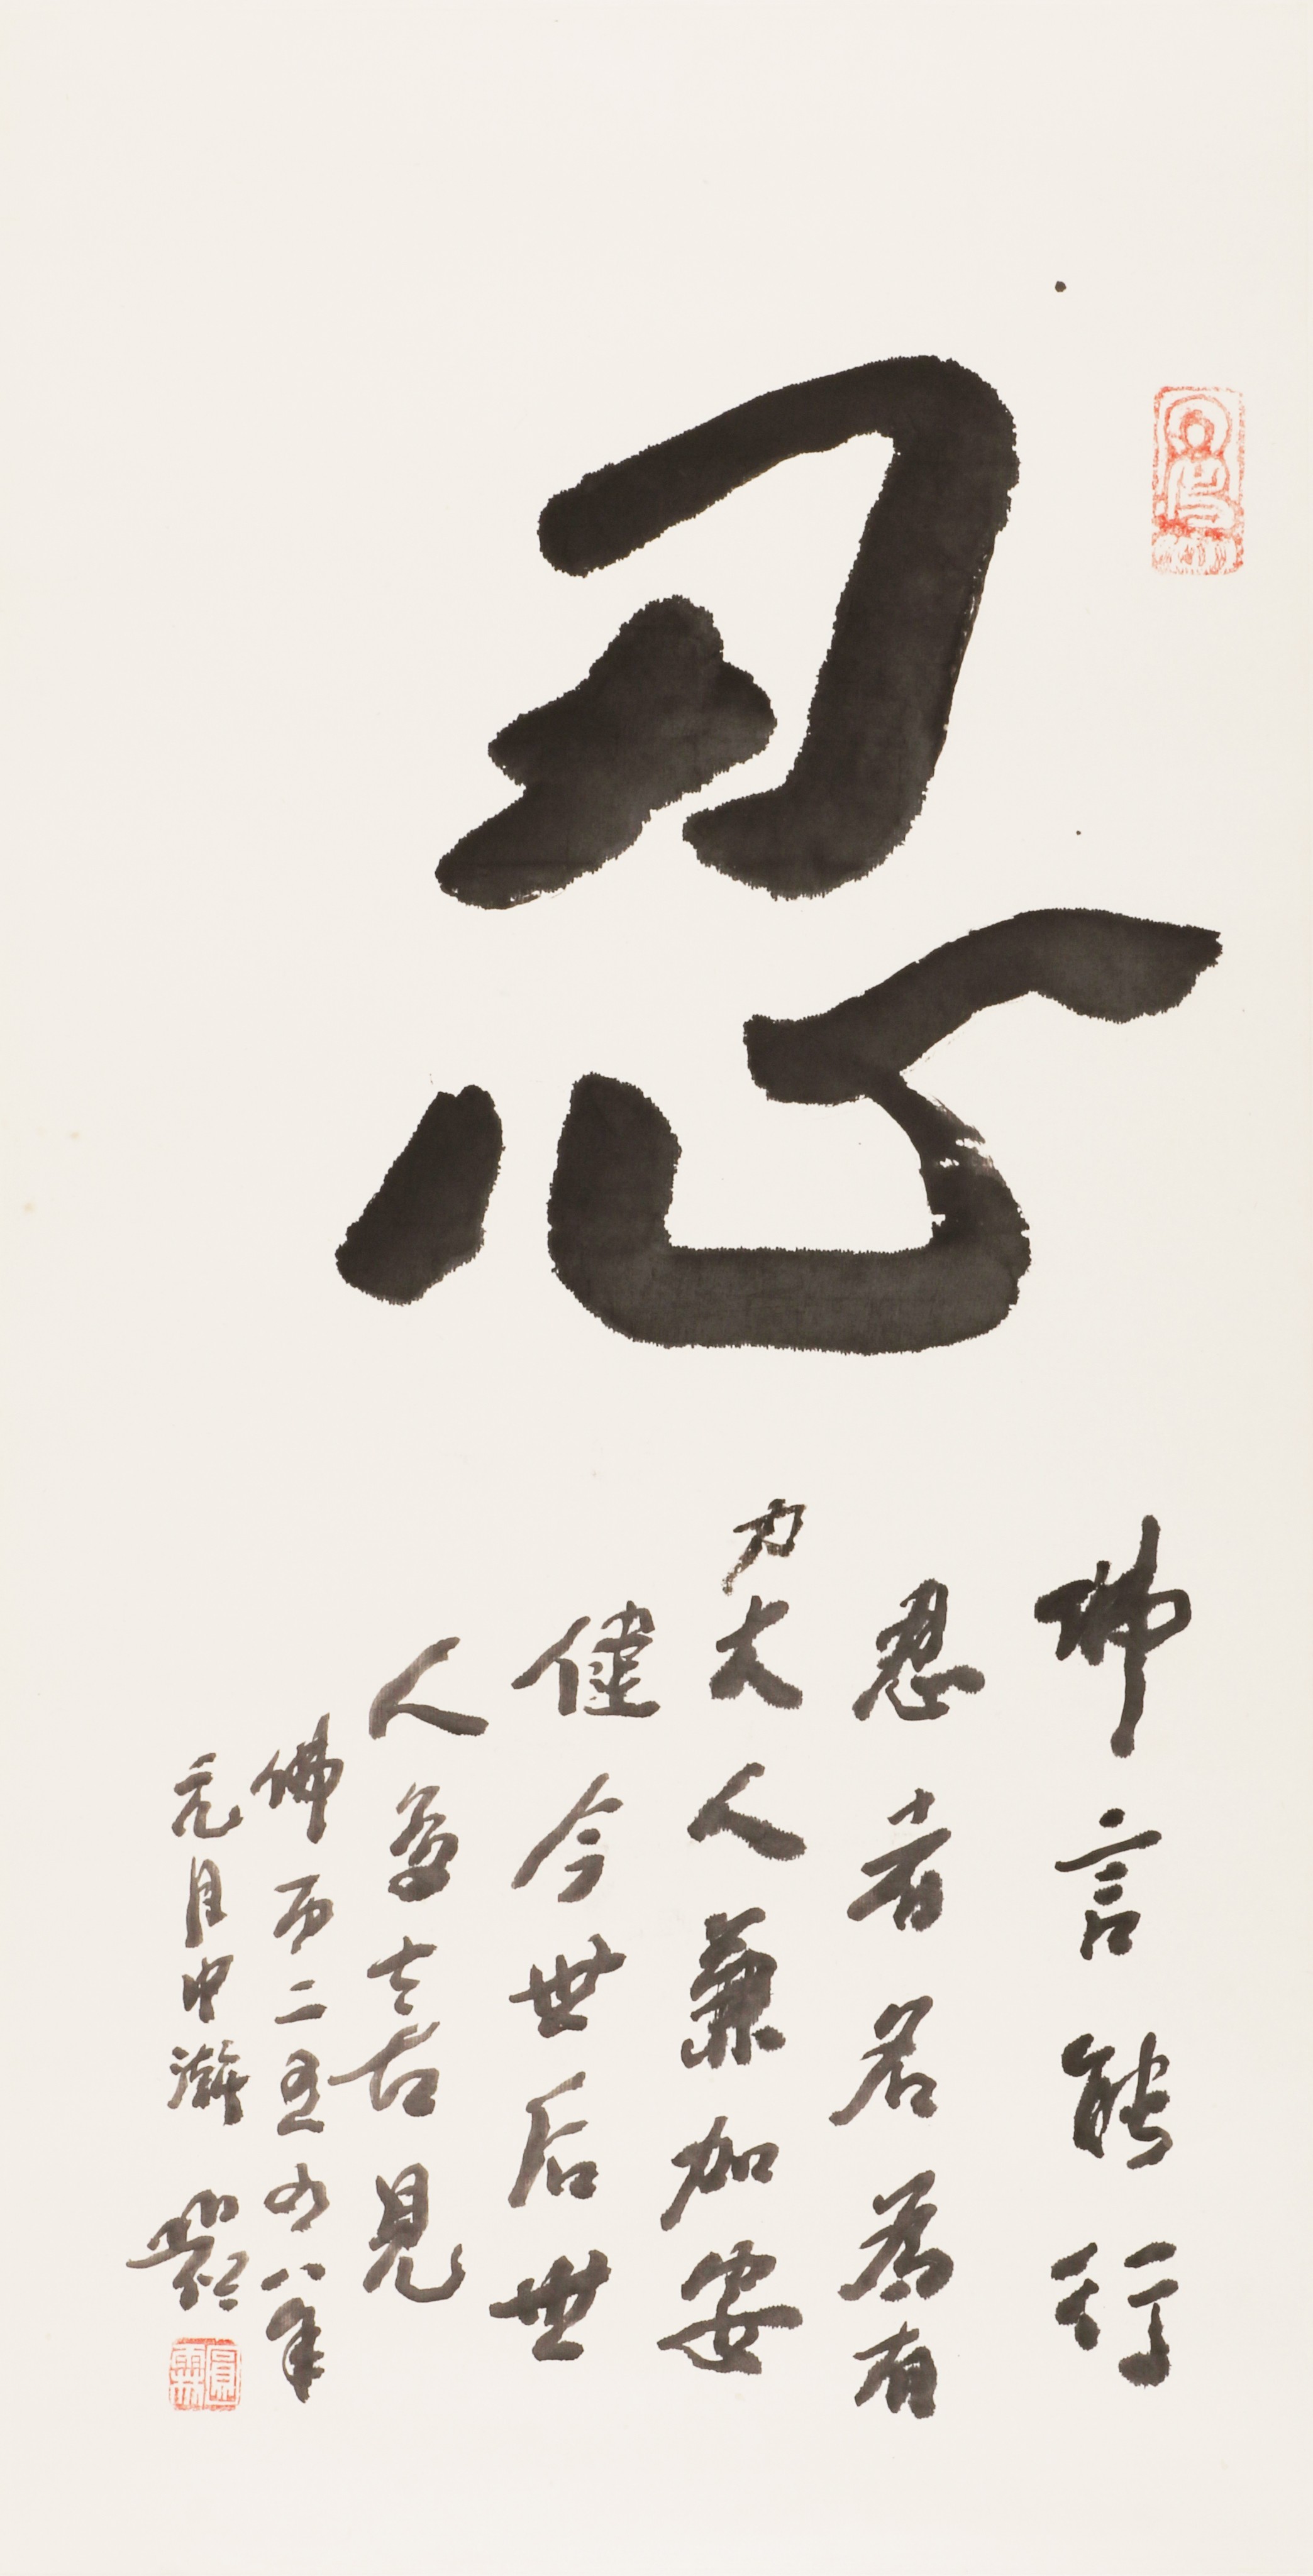 忍
佛言能行
忍者名為有
力大人兼加安
健今世后世
人喜見
佛二五四八年
元月中澣
圓霖